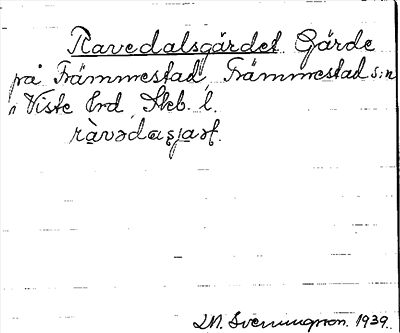 Ravedalsgärdet Gärde
på Främmestad, Främmestad s:n
i Viste hrd, Skb. l.
L.N. Svenungsson. 1939.